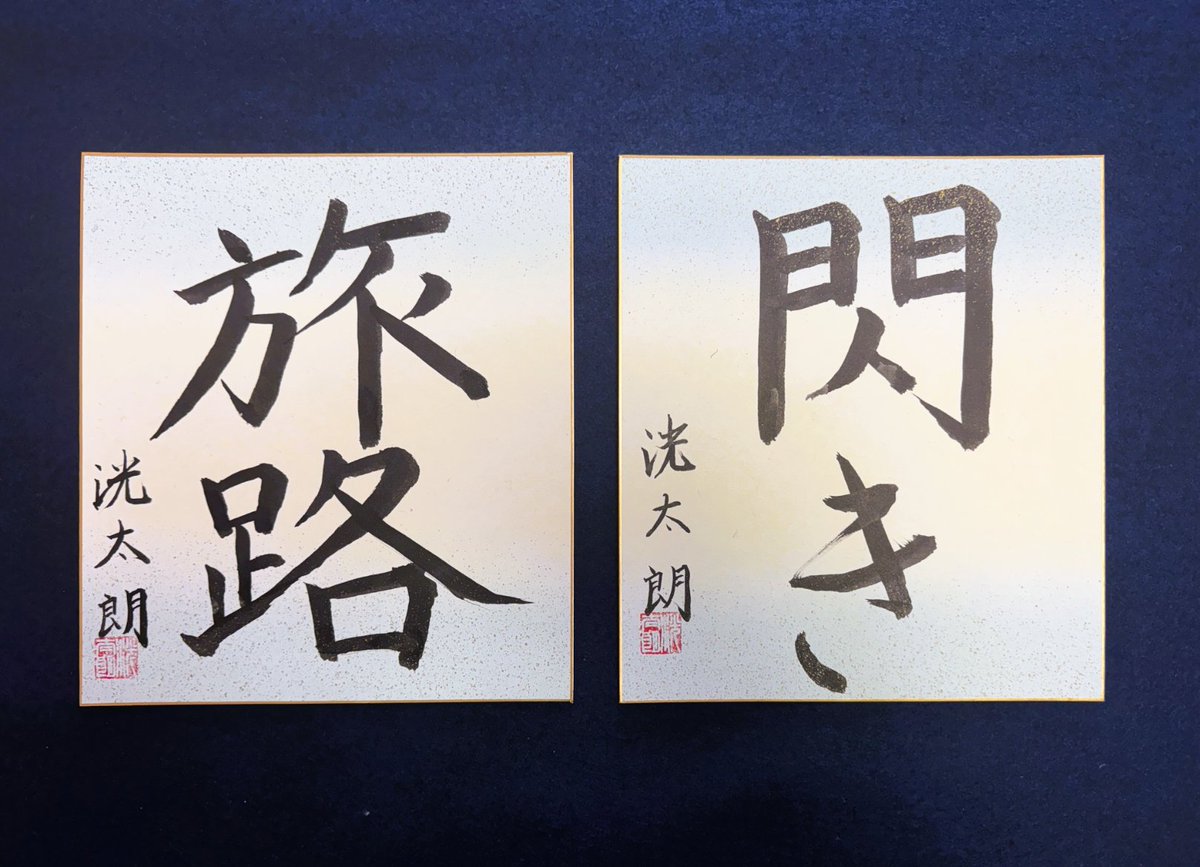 旅路
洸太朗
閃き
洸太朗